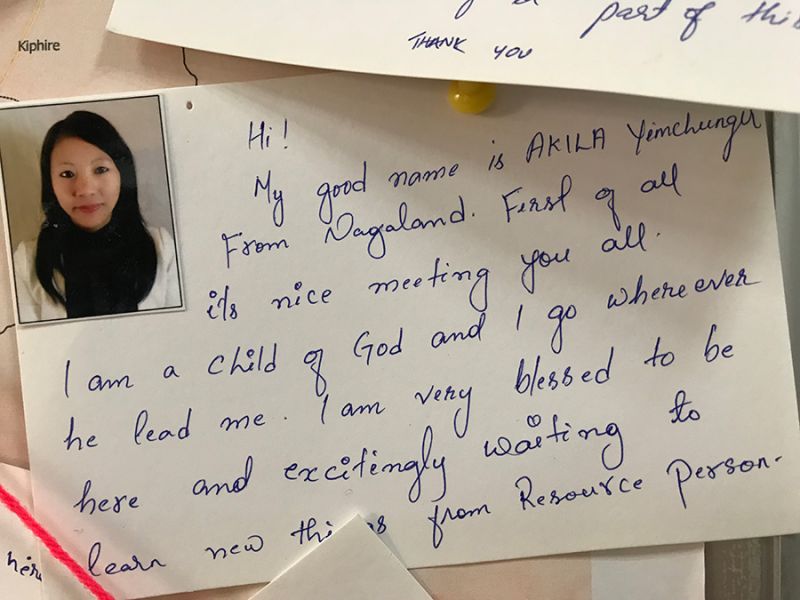 part of this
THANK YOU
Kiphire
Hi!
My good name is AKILA Yimchunger
From Nagaland. First of all
it's nice meeting you all.
I am a child of God and I go whereever
he lead me. I am very blessed to be
here and excitingly waiting to
learn new things from Resource person.
here